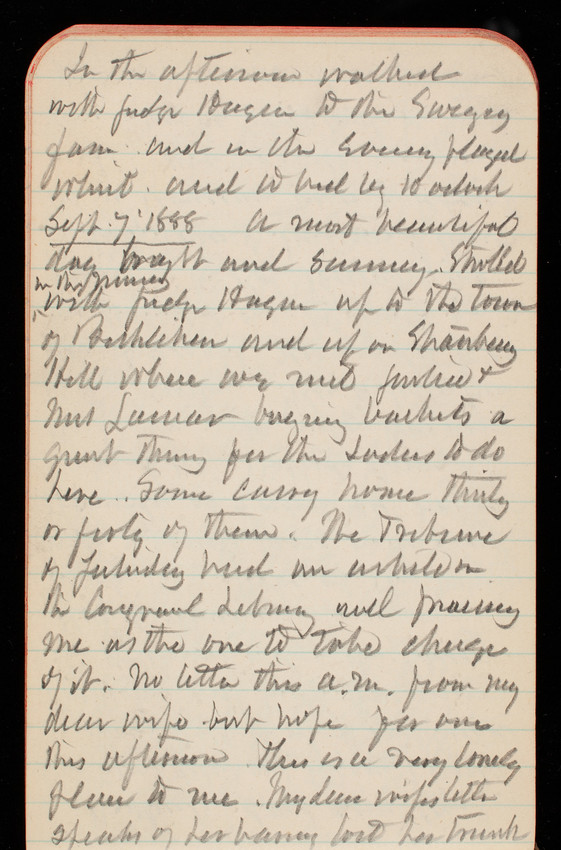 In the afternoon walked
with Judge Hagen to the Swazey
farm and in the Evening played
Whist. and to bed by 10 oclock
Sept. 7' 1888 A most beautiful
day bright and Sunney. Strolled
in the morning
with Judge Hagen up to the town
of Bethlehem and up on Strawberry
Hill where we met Justice &
Mrs Lamar buying baskets a
great thing for the Ladies to do
here. Some carry home thirty
or forty of them. The Tribune
of Saturday had an article on
the Congressnl Library and praising
me as the one to take charge
of it. No letter this a.m. from my
dear wife but hope for one
this afternoon This is a very lonely
place to me. My dear wifes letter
speaks of her having lost her trunk